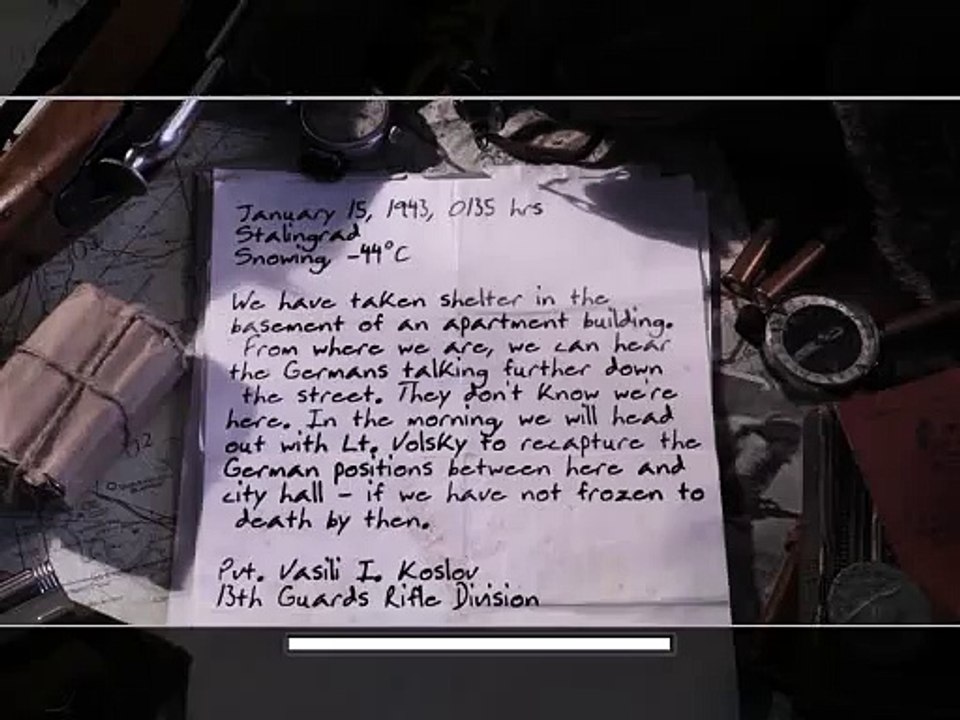 January 15, 1943, 0135 hrs
Stalingrad
Snowing, -44°C
We have taken shelter in the
basement of an apartment building.
From where we are, we can hear
the Germans talking further down
the street. They don't know we're
here. In the morning, we will head
out with Lt. Volsky to recapture the
German positions between here and
city hall - if we have not frozen to
death by then.
Pvt. Vasili I. Koslov
13th Guards Rifle Division
12